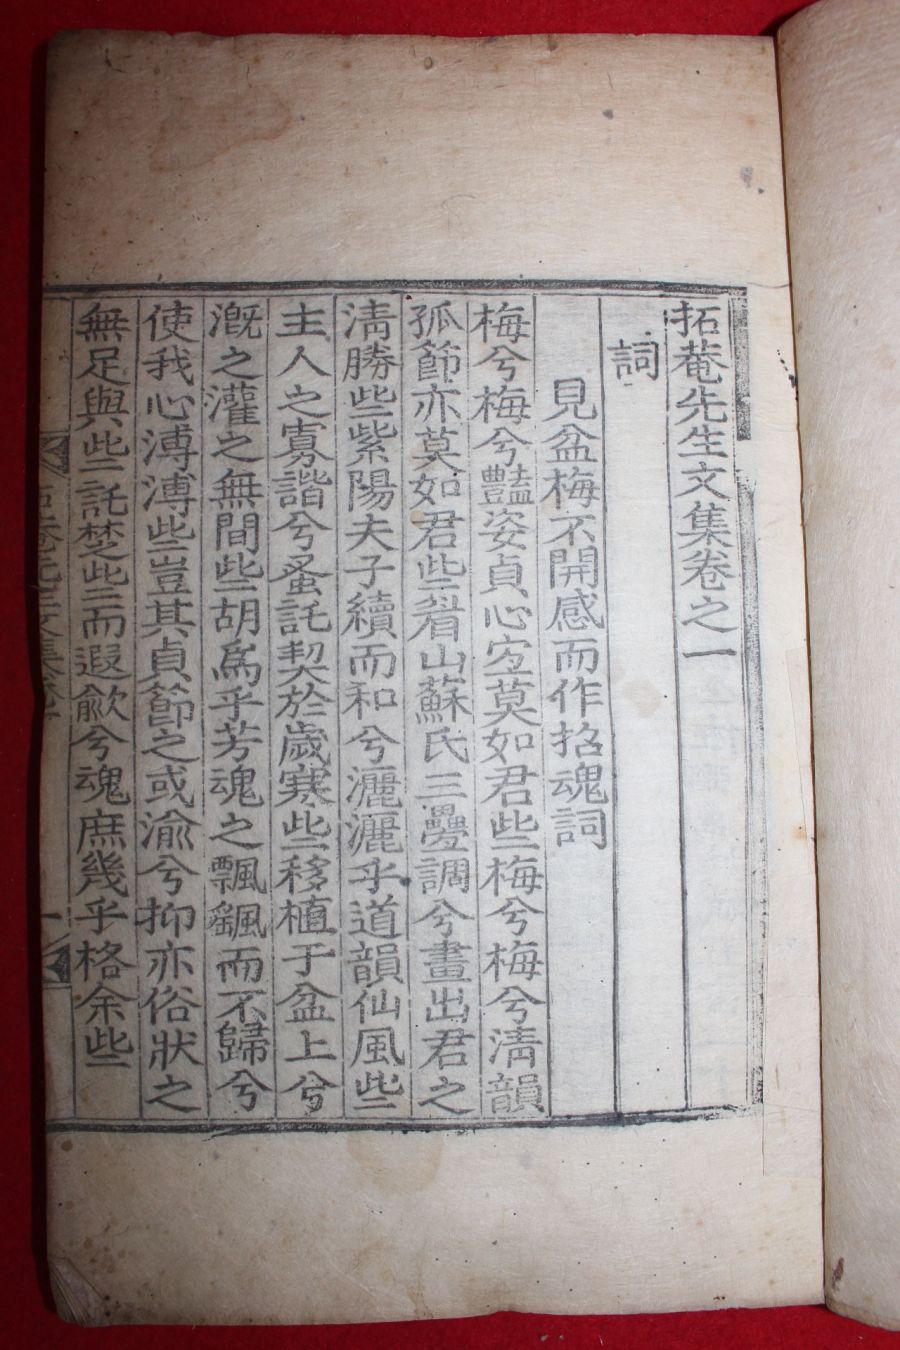 拓菴先生文集卷之一
詞
見盆梅不開感而作招魂詞
梅兮梅兮豔姿貞心宜莫如君些梅兮梅兮淸韻
孤節亦莫如君些眉山蘇氏三疊調兮畫出君之
淸勝些紫陽夫子續而和兮灑灑乎道韻仙風些
主人之寡諧兮蚤託契於歲寒些移植于盆上兮
漑之灌之無間些胡爲乎芳魂之飄颻而不歸兮
使我心溥溥些豈其貞節之或渝兮抑亦俗狀之
無足與些託楚些而遐歈兮魂庶幾乎格余些